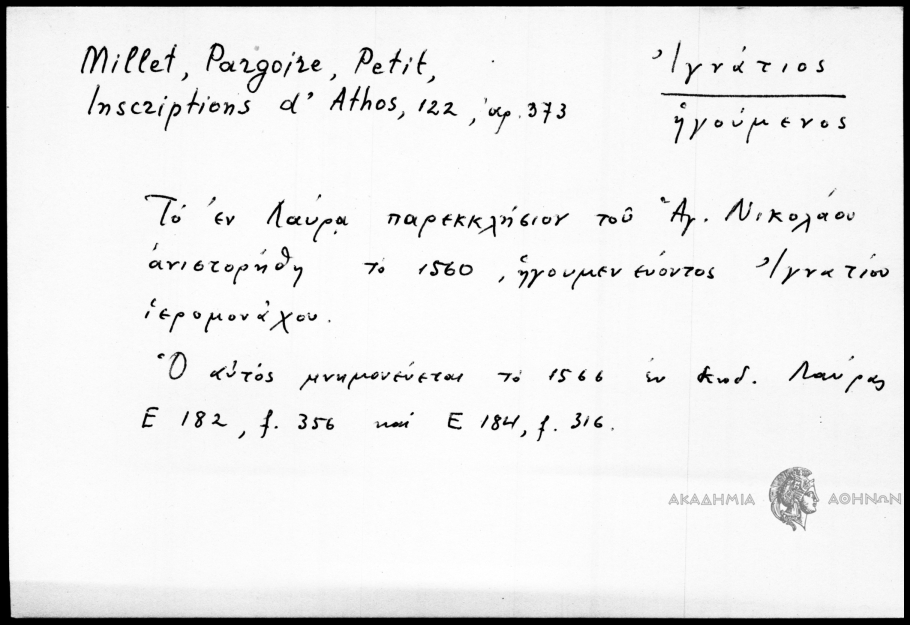 Millet, Pargoire, Petit,
Inscriptions d' Athos, 122, ἀρ. 373
Ἰγνάτιος
ἡγούμενος
Τό ἐν Λαύρᾳ παρεκκλήσιον τοῦ Ἁγ. Νικολάου
ἀνιστορήθη τό 1560, ἡγουμενεύοντος Ἰγνατίου
ἱερομονάχου.
Ὁ αὐτός μνημονεύεται τό 1566 ἐν κωδ. Λαύρας
E 182, f. 356 καί E 184, f. 316.
ΑΚΑΔΗΜΙΑ ΑΘΗΝΩΝ